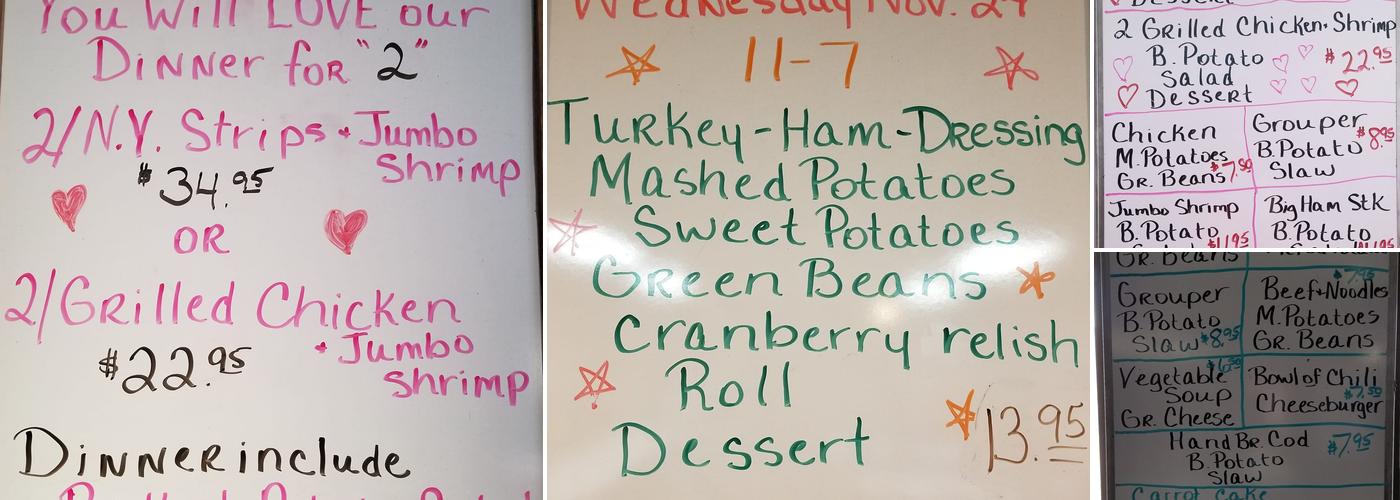 You Will LOVE our
Dinner for "2"
2/N.Y. Strips + Jumbo
Shrimp
$34.95
OR
2/Grilled Chicken
+ Jumbo
$22.95
Shrimp
Dinner include
Wednesday Nov. 27
11-7
Turkey-Ham-Dressing
Mashed Potatoes
Sweet Potatoes
Green Beans
Cranberry relish
Roll
Dessert
13.95
Dessert
2 Grilled Chicken + Shrimp
B.Potato
$22.95
Salad
Dessert
Chicken
M.Potatoes
$7.50
Gr. Beans
Grouper
$8.95
B.Potato
Slaw
Jumbo Shrimp
B.Potato
$11.95
Big Ham Stk
B.Potato
Gr. Beans
Grouper
B.Potato
Slaw $8.95
$7.95
Beef+Noodles
M.Potatoes
Gr. Beans
Vegetable
Soup
Gr. Cheese
Bowl of Chili
$7.50
Cheeseburger
Hand Br. Cod
$7.95
B.Potato
Slaw
Carrot Cake